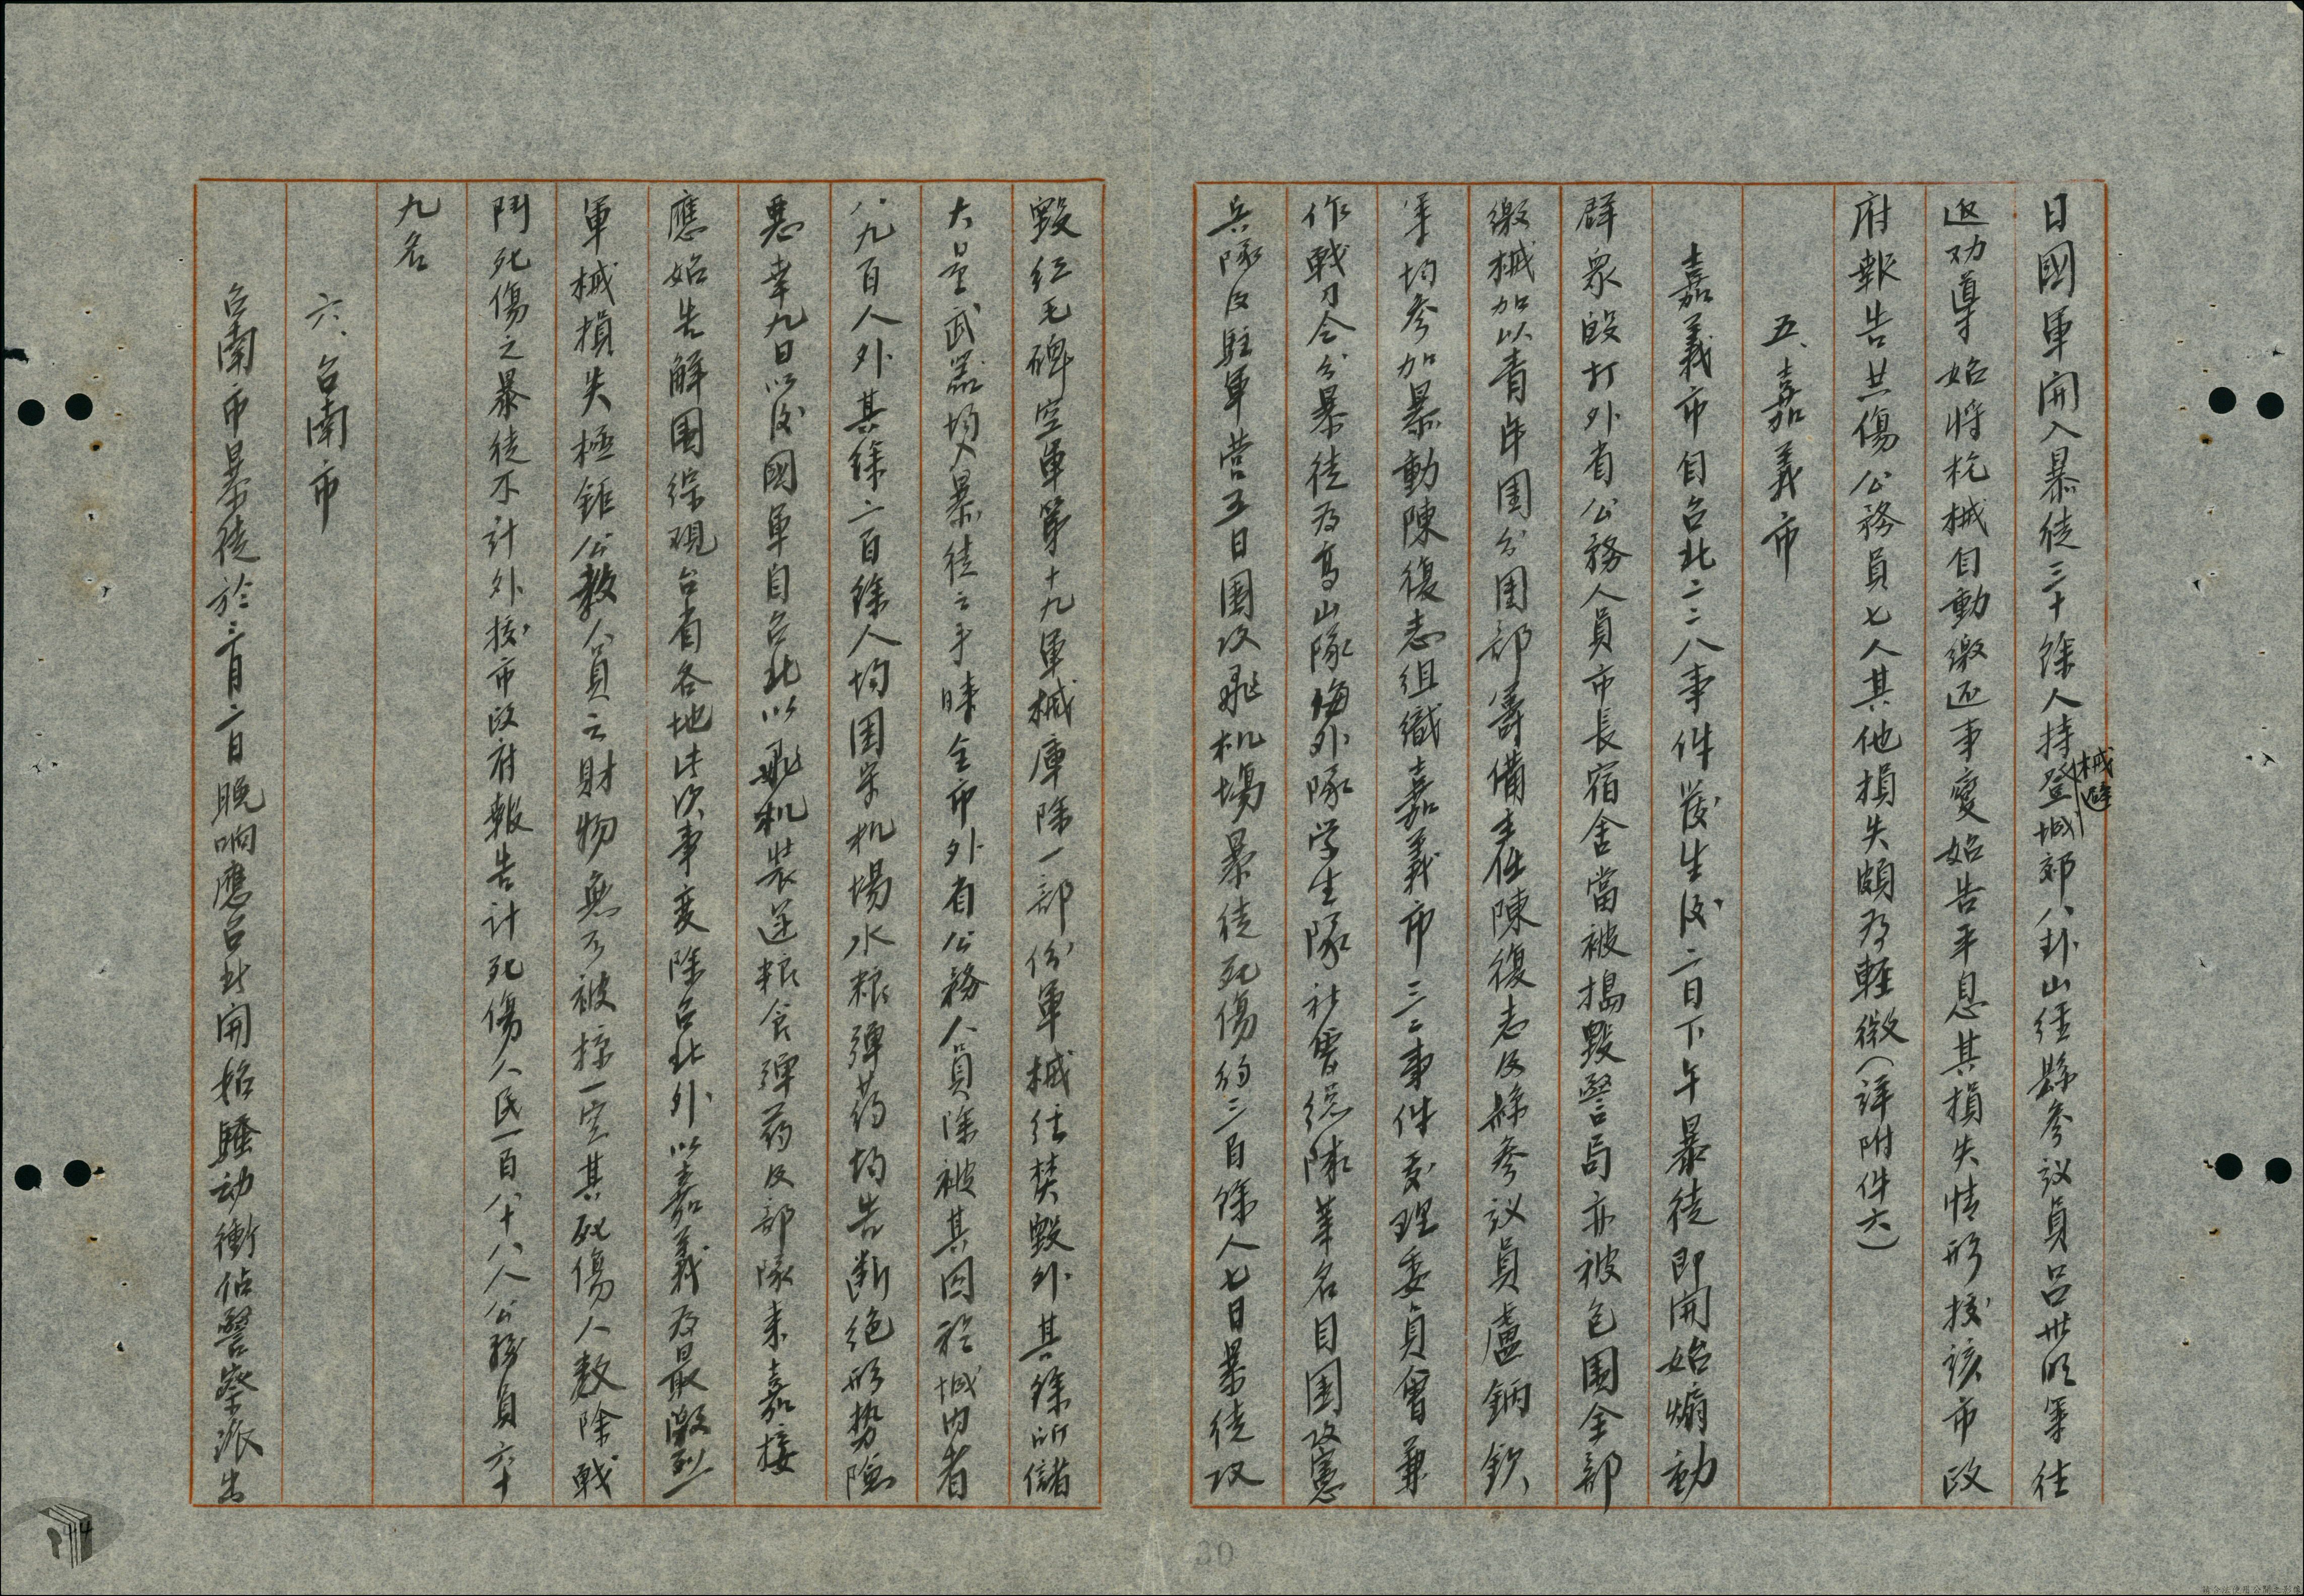 日國軍開入暴徒三十餘人持械避登城郊八卦山經縣參議員呂世明等往
返劝導始將枪械自動繳还事变始告平息其損失情形按該市政
府報告共傷公務員七人其他損失頗为輕微（詳附件六）
五、嘉義市
嘉義市自台北二二八事件發生後二日下午暴徒即開始煽動
群眾毆打外省公務人員市長宿舍當被搗毀警局亦被包圍全部
繳械加以青年團分團部籌備主任陳復志及縣參议員盧鈵欽
等均參加暴動陳復志組織嘉義市三二事件處理委員會兼
作戰司令分暴徒为高山隊海外隊学生隊社會總隊等名目圍攻憲
兵隊及駐軍营五日圍攻飛机場暴徒死傷約三百餘人七日暴徒攻
毀红毛碑空軍第十九軍械庫除一部份軍械經焚毀外其餘所儲
大量武器均入暴徒之手時全市外省公務人員除被其囚於城内者
八九百人外其餘二百餘人均困守机場水粮彈药均告断绝形势險
惡幸九日以後國軍自台北以飛机裝运粮食彈药及部隊来嘉接
應始告解圍綜观台省各地此次事变除台北外以嘉義为最激烈
軍械損失極鉅公教人員之財物無不被掠一空其死傷人数除戰
鬥死傷之暴徒不計外按市政府報告计死傷人民一百八十八人公務員六十
九名
六、台南市
台南市暴徒於三月二日晚响應台北開始騷动衝佔警察派出
30